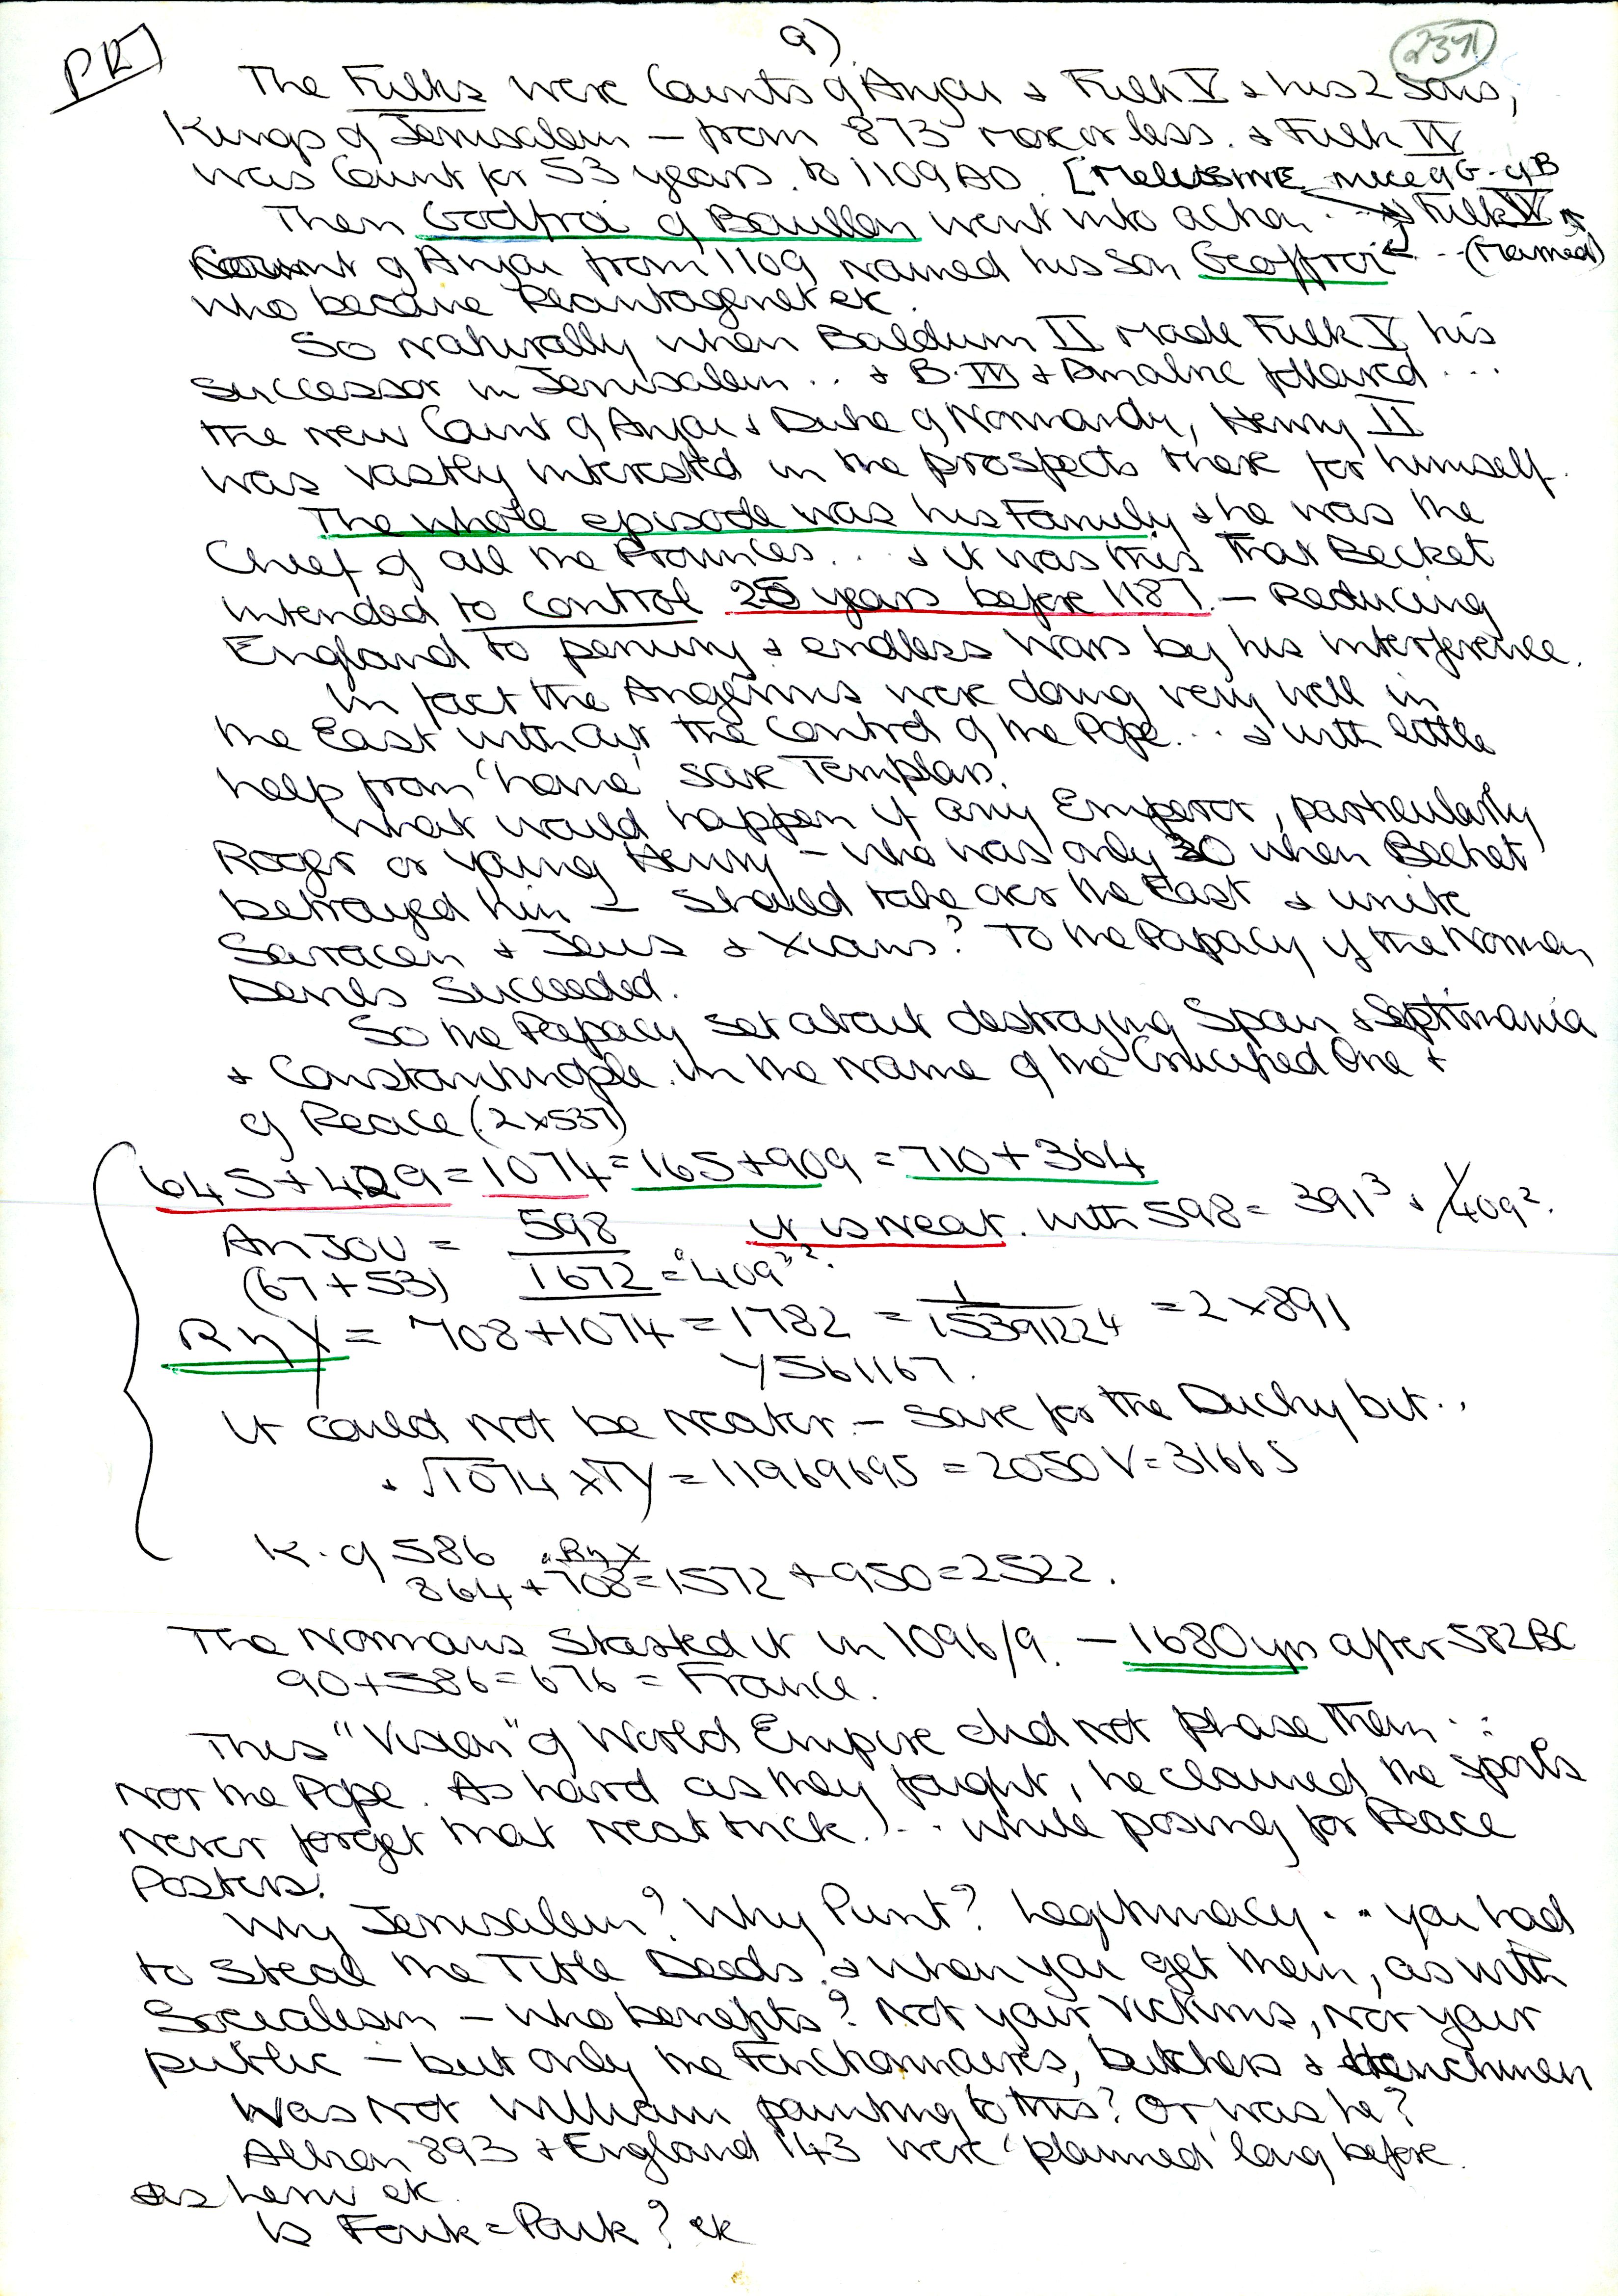 PR]
9)
2391
The Fulks were Counts of Anjou & Fulk V & his 2 sons,
Kings of Jerusalem – from 873 more or less. & Fulk IV
was Count for 53 years. to 1109 AD. [Melusine niece of G. of B
Then Godfroi of Bouillon went into action . . → Fulk V
of Anjou from 1109 named his son Geoffroi ← . . (Married)
who became Plantagenet etc.
So naturally when Baldwin II made Fulk V his
successor in Jerusalem . . & B. III & Amalric followed . . .
the new Count of Anjou & Duke of Normandy, Henry II
was vastly interested in the prospects there for himself.
The whole episode was his Family & he was the
Chief of all the Provinces . . . & it was this that Becket
intended to control 25 years before 1187. – Reducing
England to penury & endless wars by his interference.
In fact the Angevins were doing very well in
the East without the control of the Pope . . . & with little
help from 'home' save Templars.
What would happen if any Emperor, particularly
Roger or young Henry – who was only 30 when Becket
betrayed him – should take over the East & unite
Saracen & Jews & Xians? To the Papacy if the Norman
Devils succeeded.
So the Papacy set about destroying Spain & Septimania
& Constantinople in the name of the Crucified One &
of Peace (2x537)
645+429=1074=165+909=710+364
Anjou = 598 it is neat. with 598= 391³ & 1/409².
(67+53) 1672 = 409
RnX = 708+1074=1782 = 1/15391224 =2x891
√561167.
It could not be neater – save for the Duchy bit . .
& √1074 xTy=11969695 =2050 V=31665
K. of 586 RnX
864+708=1572 +950=2522.
The Normans started it in 1096/9. – 1680 yrs after 582BC
90+586=676 = France.
This "Vision" of World Empire did not phase them . :
nor the Pope. As hard as they fought, he claimed the spoils
never forget that neat trick. . . . while posing for Peace
Posters.
Why Jerusalem? Why Punt? Legitimacy . . you had
to steal the Title Deeds. & when you get them, as with
Socialism – who benefits? Not your victims, nor your
public – but only the Functionnaires, butchers & Henchmen
Was not William pointing to this? Or was he?
893 & England 143 were 'planned' long before.
etc.
Is Fouk=Pouk? etc